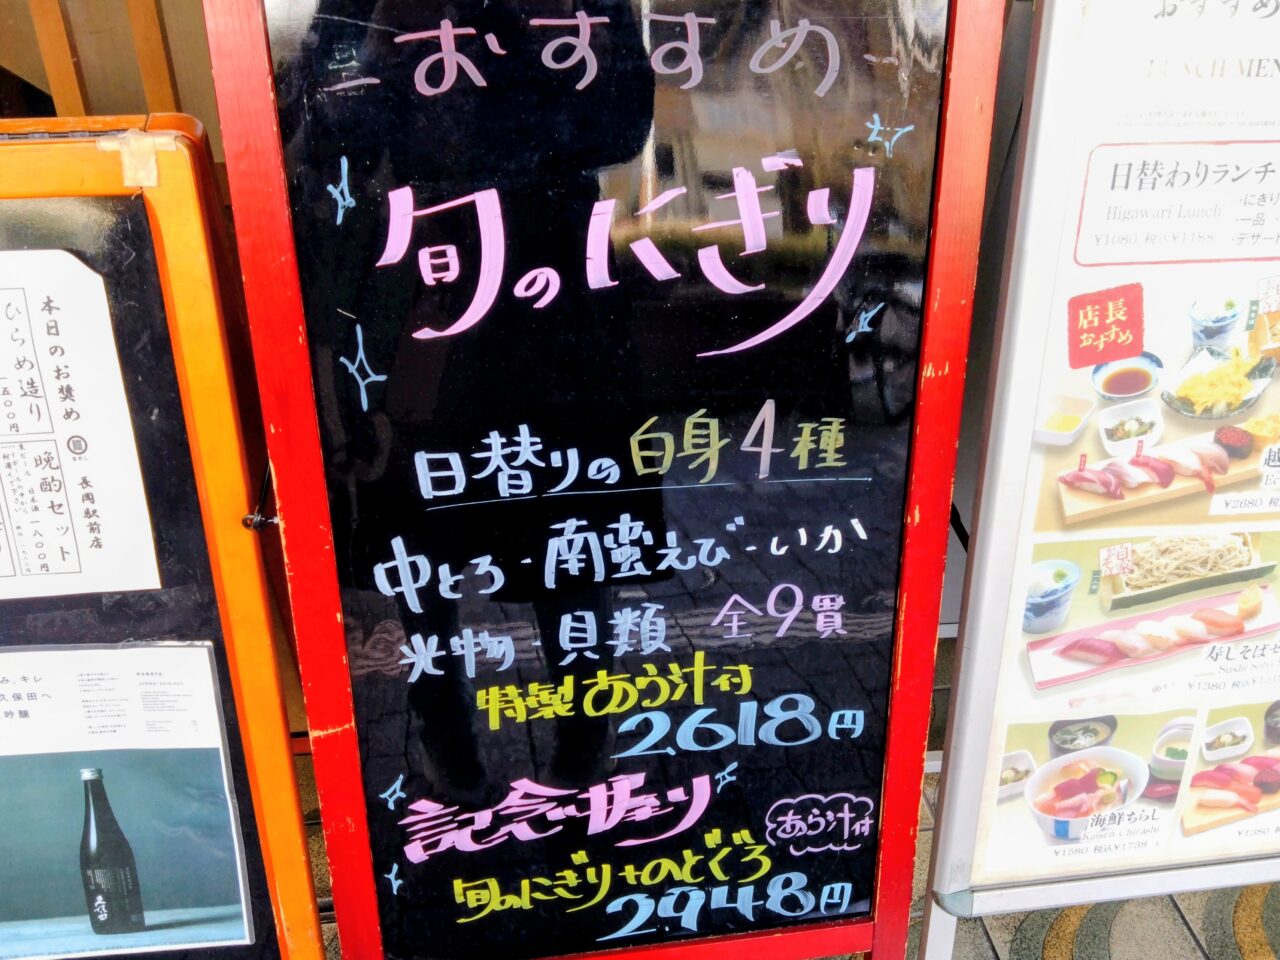 おすすめ
旬のにぎり
日替りの白身4種
中とろ・南蛮えび・いか
光物・貝類 全9貫
特製あら汁付
2,618円
記念握り
あら汁付
旬のにぎり+のどぐろ
2,948円
本日のお奨め
長岡駅前店
ひらめ造り
晩酌セット
み、キレ
久保田へ
吟醸
久保田
おすすめ
LUNCH MEN
日替わりランチ
Higawari Lunch
¥1080 税込¥1188
・にぎり
・一品
・デザート
店長
おすすめ
越
¥2680 税
寿しそばセ
¥1380 税込¥151
海鮮ちらし
Kaisen Chirashi
¥1580 税込¥1738
¥1380 税